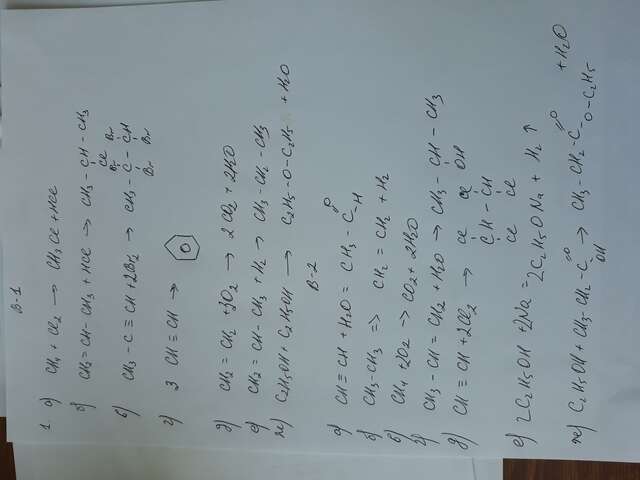 В-1
1. а) CH4 + Cl2 → CH3Cl + HCl
б) CH2 = CH - CH3 + HCl → CH3 - CH - CH3
Cl
Br Br
в) CH3 - C ≡ CH + 2Br2 → CH3 - C - CH
Br Br
г) 3 CH ≡ CH →
д) CH2 = CH2 + 3O2 → 2CO2 + 2H2O
е) CH2 = CH - CH3 + H2 → CH3 - CH2 - CH3
ж) C2H5OH + C2H5OH → C2H5 - O - C2H5 + H2O
В-2
а) CH ≡ CH + H2O = CH3 - C =O - H
б) CH3 - CH3 => CH2 = CH2 + H2
в) CH4 + 2O2 → CO2 + 2H2O
г) CH3 - CH = CH2 + H2O → CH3 - CH - CH3
OH
Cl Cl
д) CH ≡ CH + 2Cl2 → CH - CH
Cl Cl
е) 2C2H5OH + 2Na = 2C2H5ONa + H2 ↑
ж) C2H5OH + CH3 - CH2 - C =O OH → CH3 - CH2 - C =O - O - C2H5 + H2O